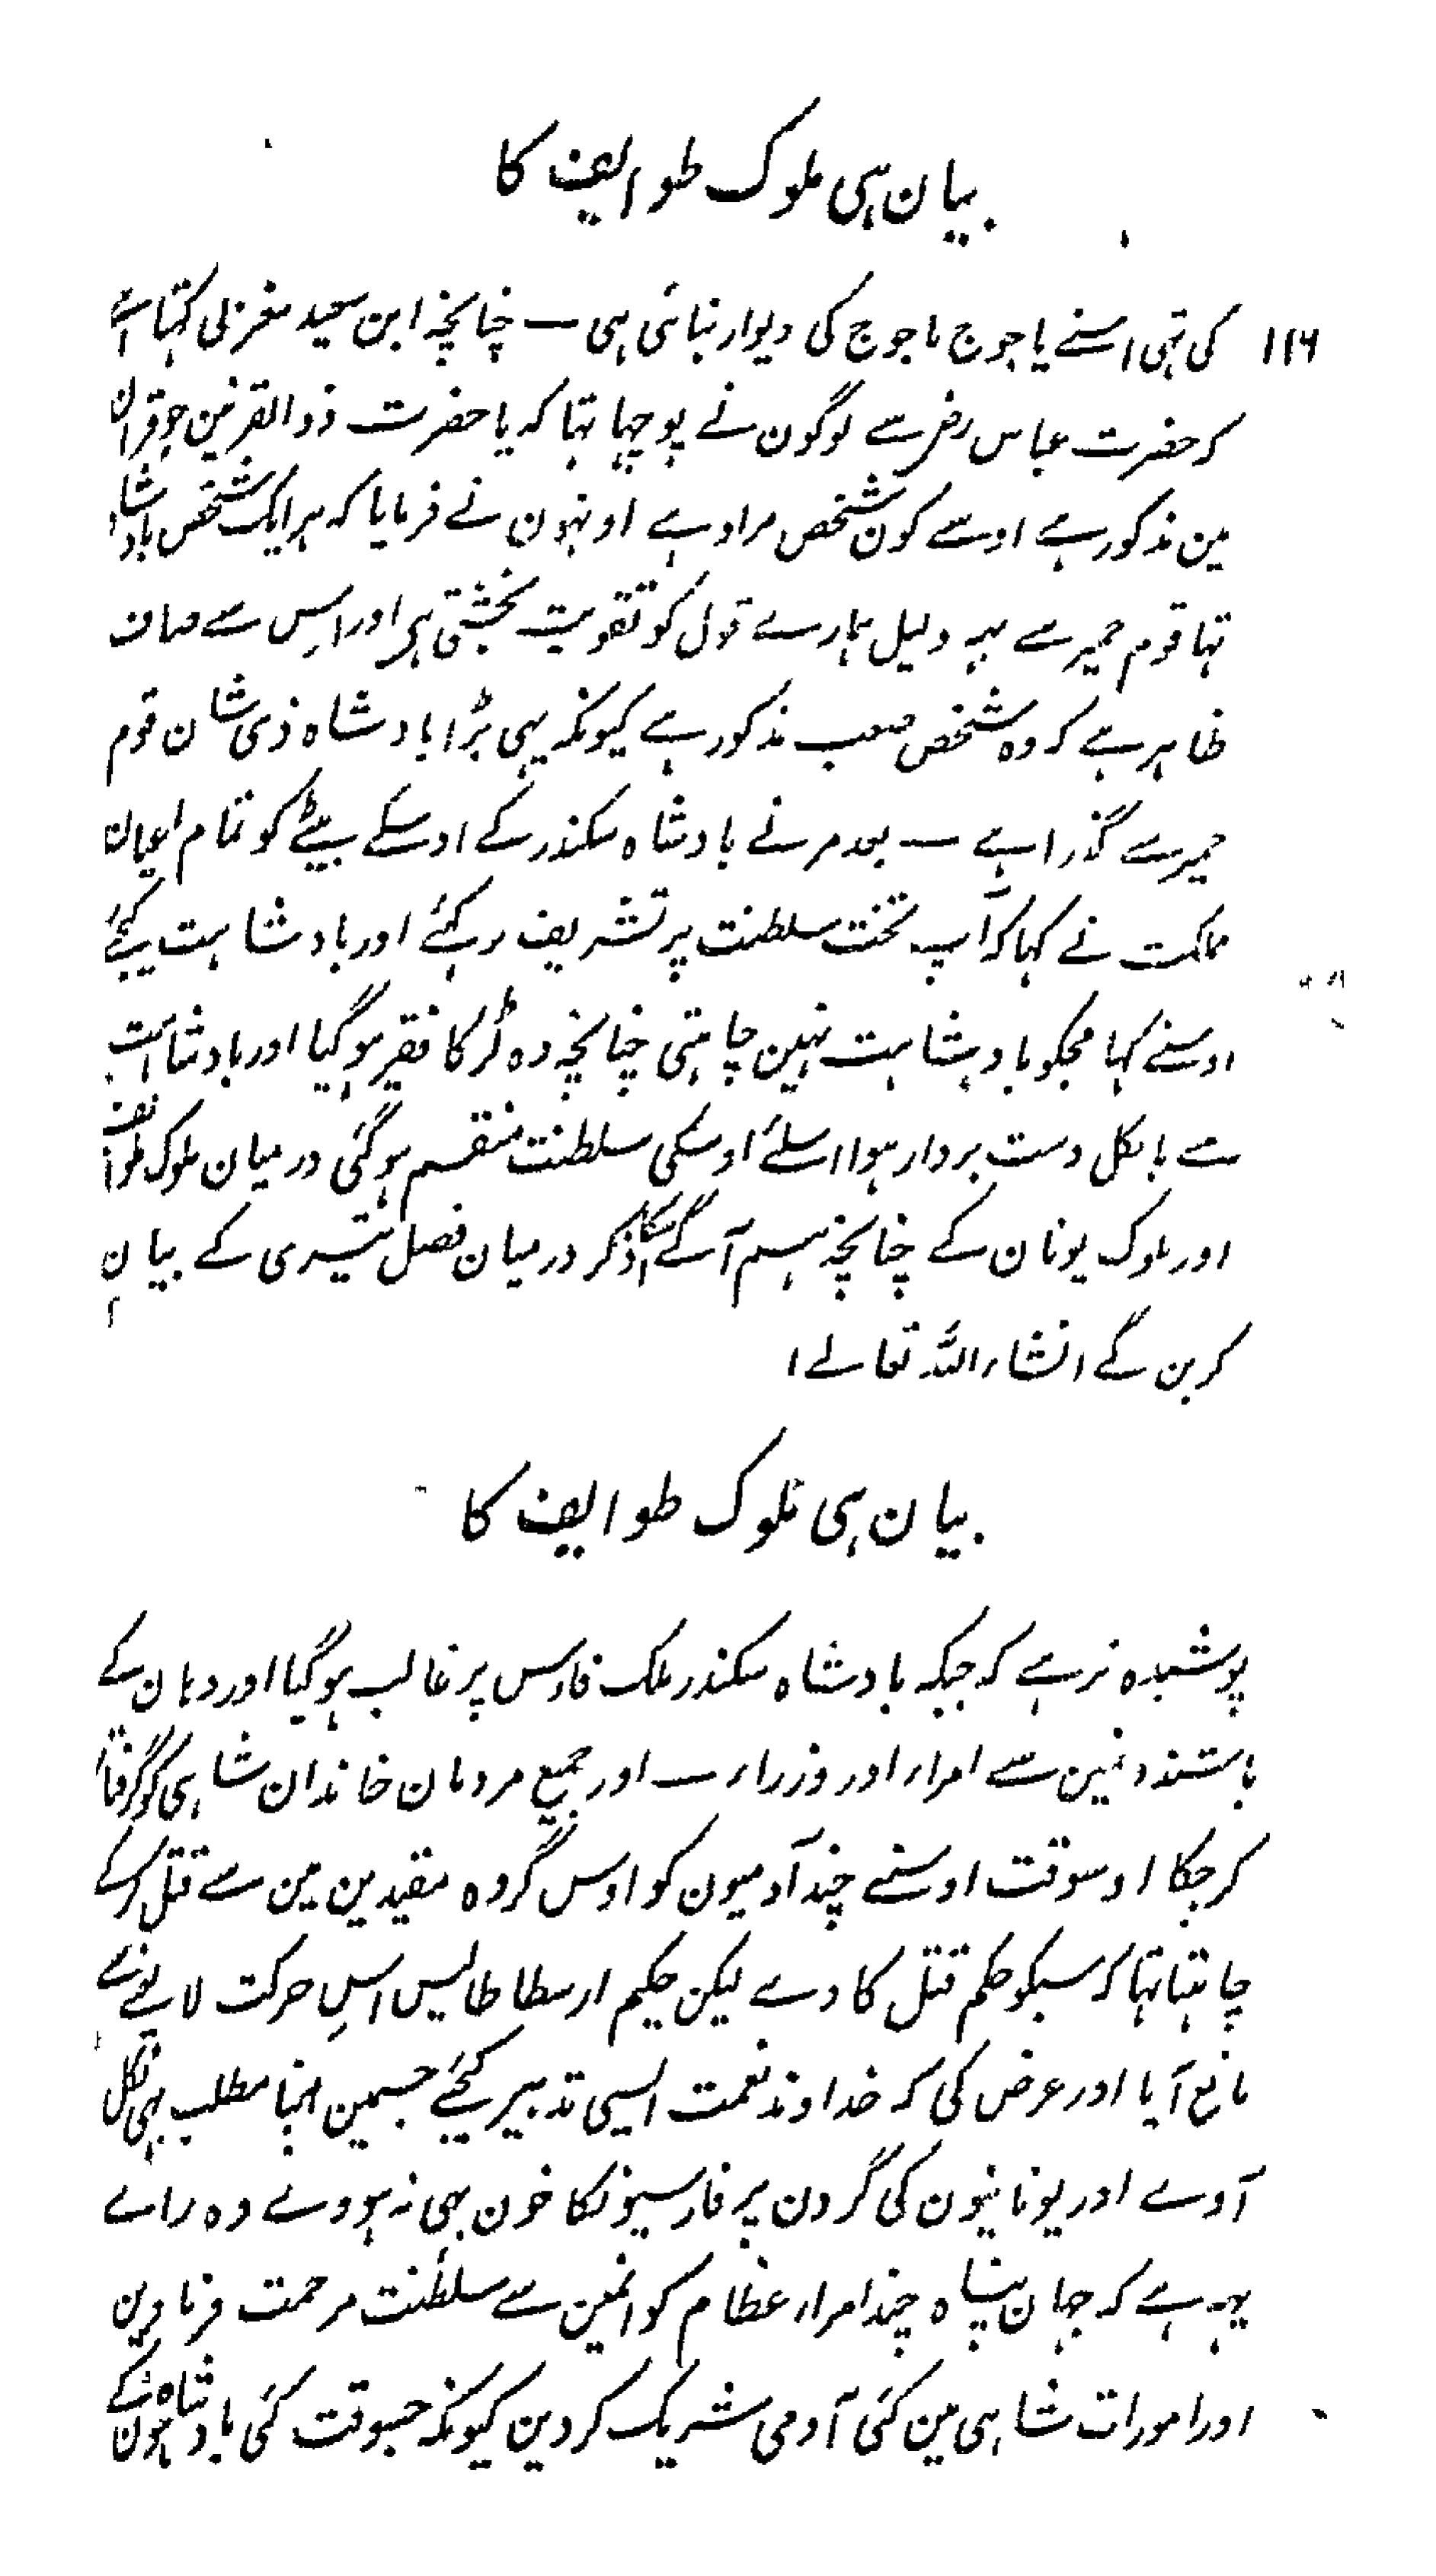 بیان ہی ملوک طوایف کا
۱۱۶ کی تہی اسنے یاجوج ماجوج کی دیوار بنائی ہی — چنانچہ ابن سعید مغربی کہتا ہے
کہ حضرت عباس رض سے لوگون نے پوچہا تہا کہ یا حضرت ذوالقرنین جو قران
مین مذکور ہے اوسے کون شخص مراد ہے اونہون نے فرمایا کہ ہر ایک شخص بادشاہ
تہا قوم حمیر سے یہہ دلیل ہمارے قول کو تقویت بخشتی ہی اور اِس سے صاف
ظاہر ہے کہ وہ شخص صعب مذکور ہے کیونکہ یہی بڑا بادشاہ ذی شان قوم
حمیر سے گذرا ہے — بعد مرنے بادشاہ سکندر کے اوسکے بیٹے کو تمام اعیان
مملکت نے کہا کہ آپ تخت سلطنت پر تشریف رکہئے اور بادشاہت کیجئے
اوسنے کہا مجکو بادشاہت نہین چاہتی چنانچہ وہ لڑکا فقیر ہو گیا اور بادشاہت
سے بالکل دست بردار ہوا اسلئے اوسکی سلطنت منقسم ہو گئی درمیان ملوک طوایف
اور ملوک یونان کے چنانچہ ہم آگے اسکا ذکر درمیان فصل تیسری کے بیان
کرین گے انشاء اللہ تعالے ا
بیان ہی ملوک طوایف کا
پوشیدہ نرہے کہ جبکہ بادشاہ سکندر ملک فارس پر غالب ہو گیا اور وہان کے
باشندونمین سے امراء اور وزراء — اور جمیع مردمان خاندان شاہی کو گرفتار
کر چکا اوسوقت اوسنے چند آدمیون کو اوس گروہ مقیدین مین سے قتل کرکے
چاہتا تہا کہ سبکو حکم قتل کا دے لیکن حکیم ارسطاطالیس اسِ حرکت لائے سے
مانع آیا اور عرض کی کہ خداوند نعمت ایسی تدبیر کیجئے جسمین اپنا مطلب بہی نکل
آوے اور یونانیون کی گردن پر فارسیونکا خون بہی نہ ہووے وہ رائے
یہہ ہے کہ جہان پناہ چند امراء عظام کو انمین سے سلطنت مرحمت فرماوین
اور امورات شاہی مین کئی آدمی شریک کردین کیونکہ جسوقت کئی بادشاہ ہون گے